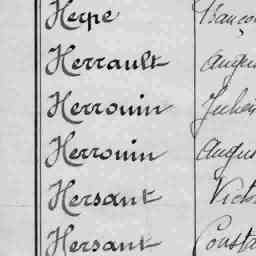 Herpe Françoi
Herrault Augus
Herrouin Julien
Herrouin Augus
Hersant Victo
Hersant Consta